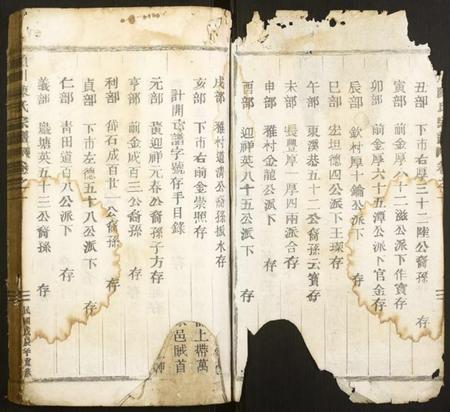 丑部 下市右厚三十二陸公裔孫
寅部 前金厚八十二滋公派下作寶存
卯部 前金厚六十五潭公派下官金存
辰部 欽村厚十鑰公派下 存
巳部 宏坦德四公派下玉琛存
午部 東溪巷五十二公裔孫云寶存
未部 長豐厚一厚四兩派合存
申部 雅村金龍公派下 存
酉部 迎祥英八十五公派下 存
戌部 雅村道清公裔孫振水存
亥部 下市右前金崇照存
計開宗譜字號存手目錄
元部 黃迎祥元春公裔孫子方存
亨部 前金成百三公裔孫 存
利部 石成百廿一公裔孫 存
貞部 下市左德五十八公派下 存
仁部 青田道百八公派下 存
義部 巖塘英五十三公裔孫 存
上帶萬
邑賊首
川陳氏宗譜
民國戊辰年重修